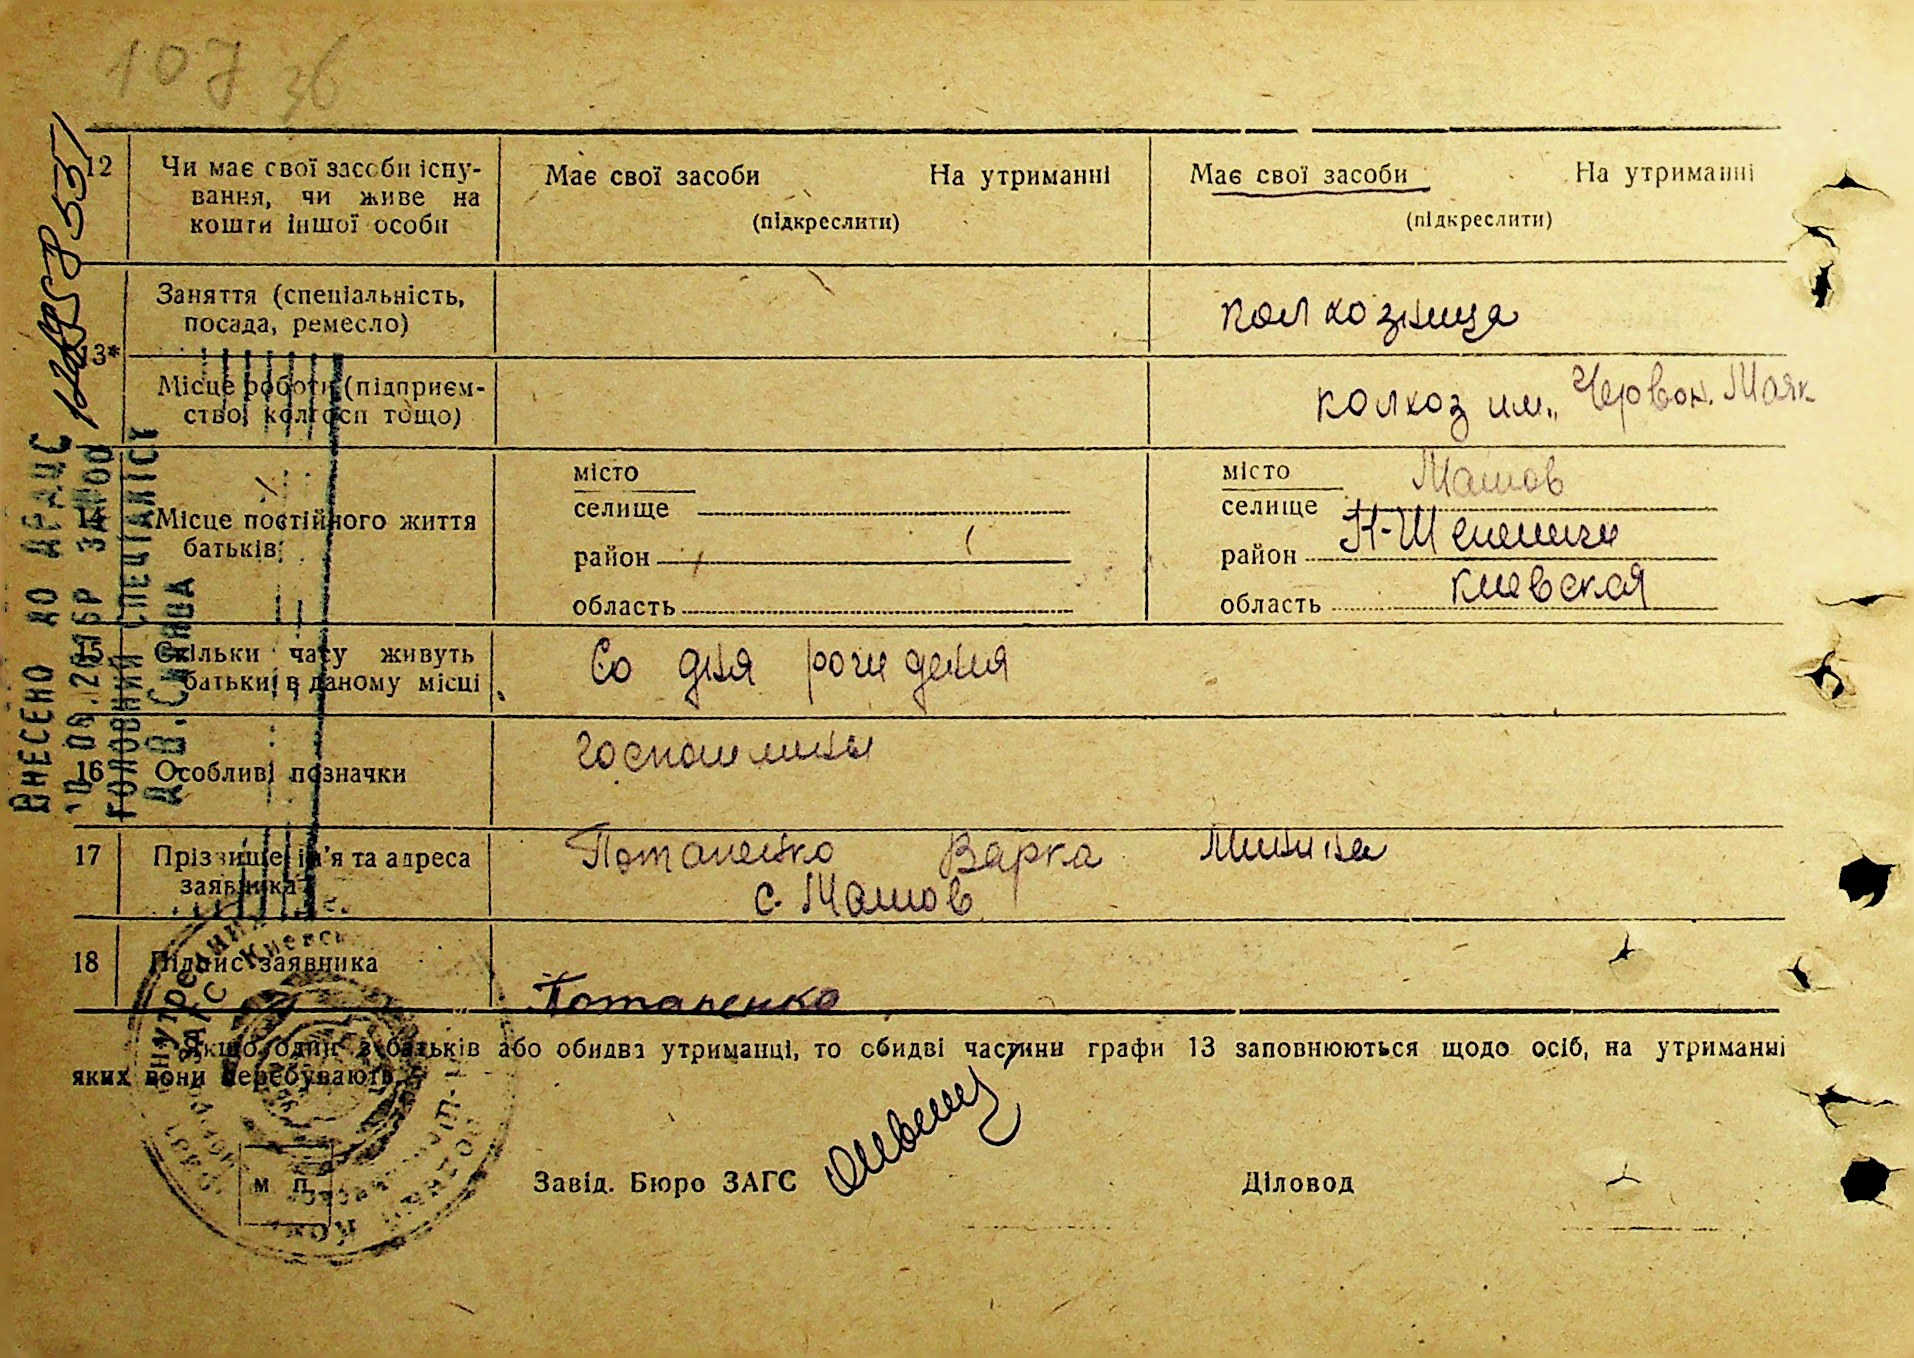 107 зб
12 Чи має свої засоби існу-
вання, чи живе на
кошти іншої особи
Має свої засоби На утриманні
(підкреслити)
Має свої засоби На утриманні
(підкреслити)
Заняття (спеціальність,
посада, ремесло)
колхозница
13*
Місце роботи (підприєм-
ство, колгосп тощо)
колхоз им. Червон. Маяк
14 Місце постійного життя
батьків
місто
селище
район
область
місто Машов
селище
район Н-Шепеличи
область киевская
15 Скільки часу живуть
батьки в даному місці
Со дня рождения
16 Особливі позначки
17 Прізвище, ім'я та адреса
заявника
Потапенко Варка Минина
с. Машов
18 Підпис заявника
Потапенко
Якщо один з батьків або обидва утриманці, то обидві частини графи 13 заповнюються щодо осіб, на утриманні
яких вони перебувають.
Завід. Бюро ЗАГС
Діловод
М П
ВНЕСЕНО ДО ДРАЦС
ГОЛОВНИЙ СПЕЦІАЛІСТ